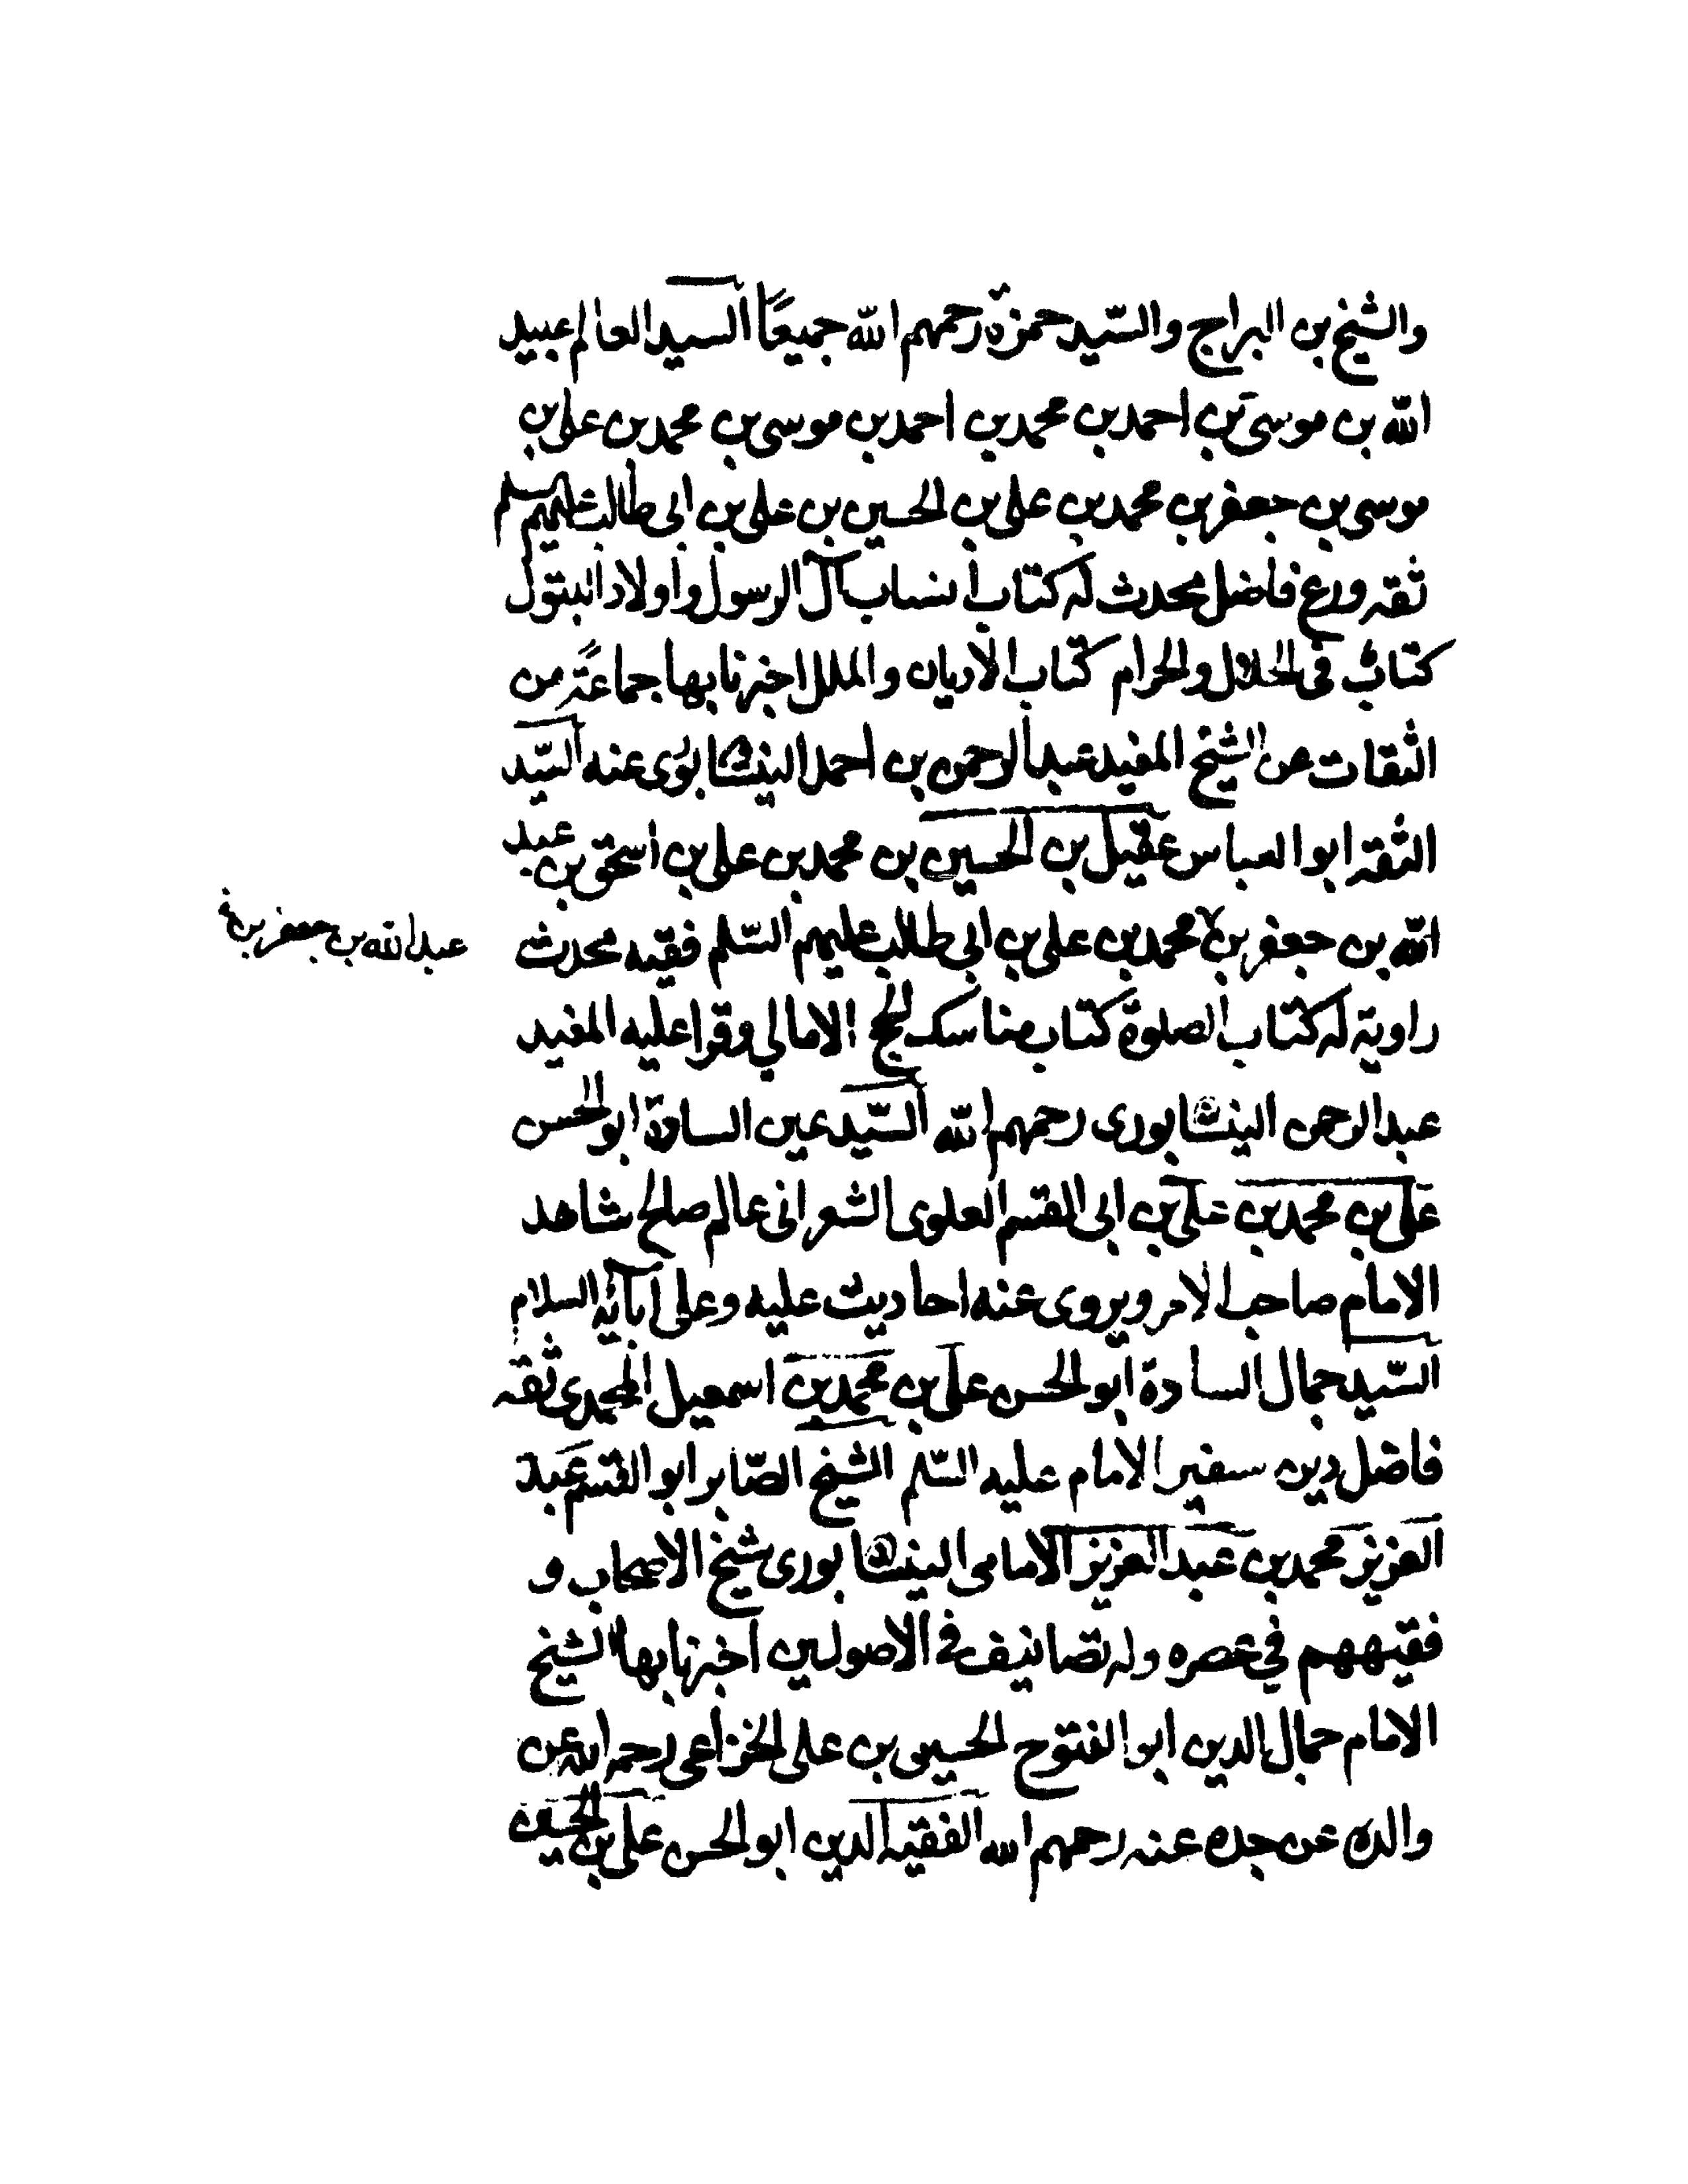 والشيخ بن البراج والسّيد حمزة رحمهم الله جميعًا السيد العالم عبيد
الله بن موسى بن احمد بن محمد بن احمد بن موسى بن محمد بن على بن
موسى بن جعفر بن محمد بن على بن الحسين بن على بن ابى طالب عليهم السلم
ثقه ورع فاضل محدث له كتاب انساب آل الرسول واولاد البتول
كتاب فى الحلال والحرام كتاب الاديان والملل اخبرنا بها جماعة من
الثقات عن الشيخ المفيد عبد الرحمن بن احمد النيشابورى عنه السّيد
الثقه ابو العباس عقيل بن الحسين بن محمد بن على بن اسحق بن عبد
الله بن جعفر بن محمد بن على بن ابى طالب عليهم السّلم فقيه محدث
عبد الله بن جعفر بن
راوية له كتاب الصلوة كتاب مناسك الحج الامالي وقرا عليه المفيد
عبد الرحمن النيشابورى رحمهم الله السّيد عين السادة ابو الحسن
على بن محمد بن على بن ابى القسم العلوى الشعرانى عالم صالح شاهد
الامام صاحب الامر ويروى عنه احاديث عليه وعلى آبائه السلام
السّيد جمال السادة ابو الحسن على بن محمد بن اسمعيل المحمدى ثقه
فاضل دين سفير الامام عليه السّلم الشيخ الصّابر ابو القسم عبد
العزيز محمد بن عبد العزيز الامامى النيشابورى شيخ الاصحاب و
فقيههم في عصره وله تصانيف فى الاصولين اخبرنا بها الشيخ
الامام جمال الدين ابو الفتوح الحسين بن على الخزاعى رحمه الله عن
والده عن جده عنه رحمهم الله الفقيه الدين ابو الحسن على بن الحسين